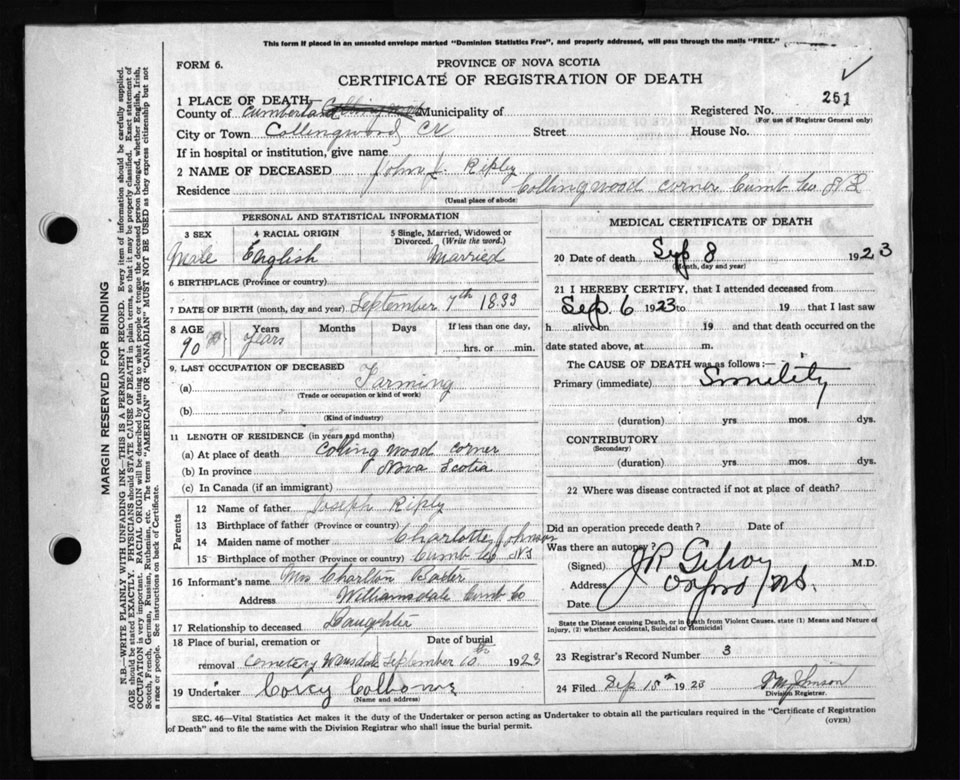 This form if placed in an unsealed envelope marked "Dominion Statistics Free", and properly addressed, will pass through the mails "FREE."
FORM 6.
PROVINCE OF NOVA SCOTIA
CERTIFICATE OF REGISTRATION OF DEATH
1 PLACE OF DEATH
County of Cumberland Municipality of Registered No. 251
(For use of Registrar General only)
City or Town Collingwood Street House No.
If in hospital or institution, give name
2 NAME OF DECEASED John J. Ripley
Residence Collingwood Corner Cumb Co
(Usual place of abode)
PERSONAL AND STATISTICAL INFORMATION
3 SEX
Male
4 RACIAL ORIGIN
English
5 Single, Married, Widowed or Divorced. (Write the word.)
Married
6 BIRTHPLACE (Province or country)
7 DATE OF BIRTH (month, day and year) September 7th 1833
8 AGE Years Months Days If less than one day,
90 years hrs. or min.
9. LAST OCCUPATION OF DECEASED
(a) Farming
(Trade or occupation or kind of work)
(b)
(Kind of industry)
11 LENGTH OF RESIDENCE (in years and months)
(a) At place of death Colling Wood Corner
(b) In province Nova Scotia
(c) In Canada (if an immigrant)
Parents
12 Name of father Joseph Ripley
13 Birthplace of father (Province or country)
14 Maiden name of mother Charlotte Johnson
15 Birthplace of mother (Province or country) Cumb Co NS
16 Informant's name Mrs Charlton Baxter
Address Williamsdale Cumb Co
17 Relationship to deceased Daughter
18 Place of burial, cremation or Date of burial
removal Cemetery September 10 1923
19 Undertaker
(Name and address)
MEDICAL CERTIFICATE OF DEATH
20 Date of death Sep 8 1923
(Month, day and year)
21 I HEREBY CERTIFY, that I attended deceased from
Sep. 6 1923 to 19 that I last saw
h alive on 19 and that death occurred on the
date stated above, at m.
The CAUSE OF DEATH was as follows:—
Primary (immediate)
(duration) yrs mos. dys.
CONTRIBUTORY
(Secondary)
(duration) yrs. mos. dys.
22 Where was disease contracted if not at place of death?
Did an operation precede death? Date of
Was there an autopsy?
(Signed) J R Gilroy M.D.
Address Oxford N.S.
Date
State the Disease causing Death, or in death from Violent Causes, state (1) Means and Nature of Injury, (2) whether Accidental, Suicidal or Homicidal
23 Registrar's Record Number 3
24 Filed Sep 10th 1923
Division Registrar.
SEC. 46—Vital Statistics Act makes it the duty of the Undertaker or person acting as Undertaker to obtain all the particulars required in the "Certificate of Registration
of Death" and to file the same with the Division Registrar who shall issue the burial permit.
(OVER)
MARGIN RESERVED FOR BINDING
N.B.—WRITE PLAINLY WITH UNFADING INK—THIS IS A PERMANENT RECORD. Every item of information should be carefully supplied.
AGE should be stated EXACTLY. PHYSICIANS should STATE CAUSE OF DEATH in plain terms, so that it may be properly classified. Exact statement of
OCCUPATION is very important. RACIAL ORIGIN will be described by stating to what people or tongue the deceased person belonged, whether English, Irish,
Scotch, French, German, Russian, Ruthenian, etc. The terms "AMERICAN" OR "CANADIAN" MUST NOT BE USED as they express citizenship but not
a race or people. See instructions on back of Certificate.